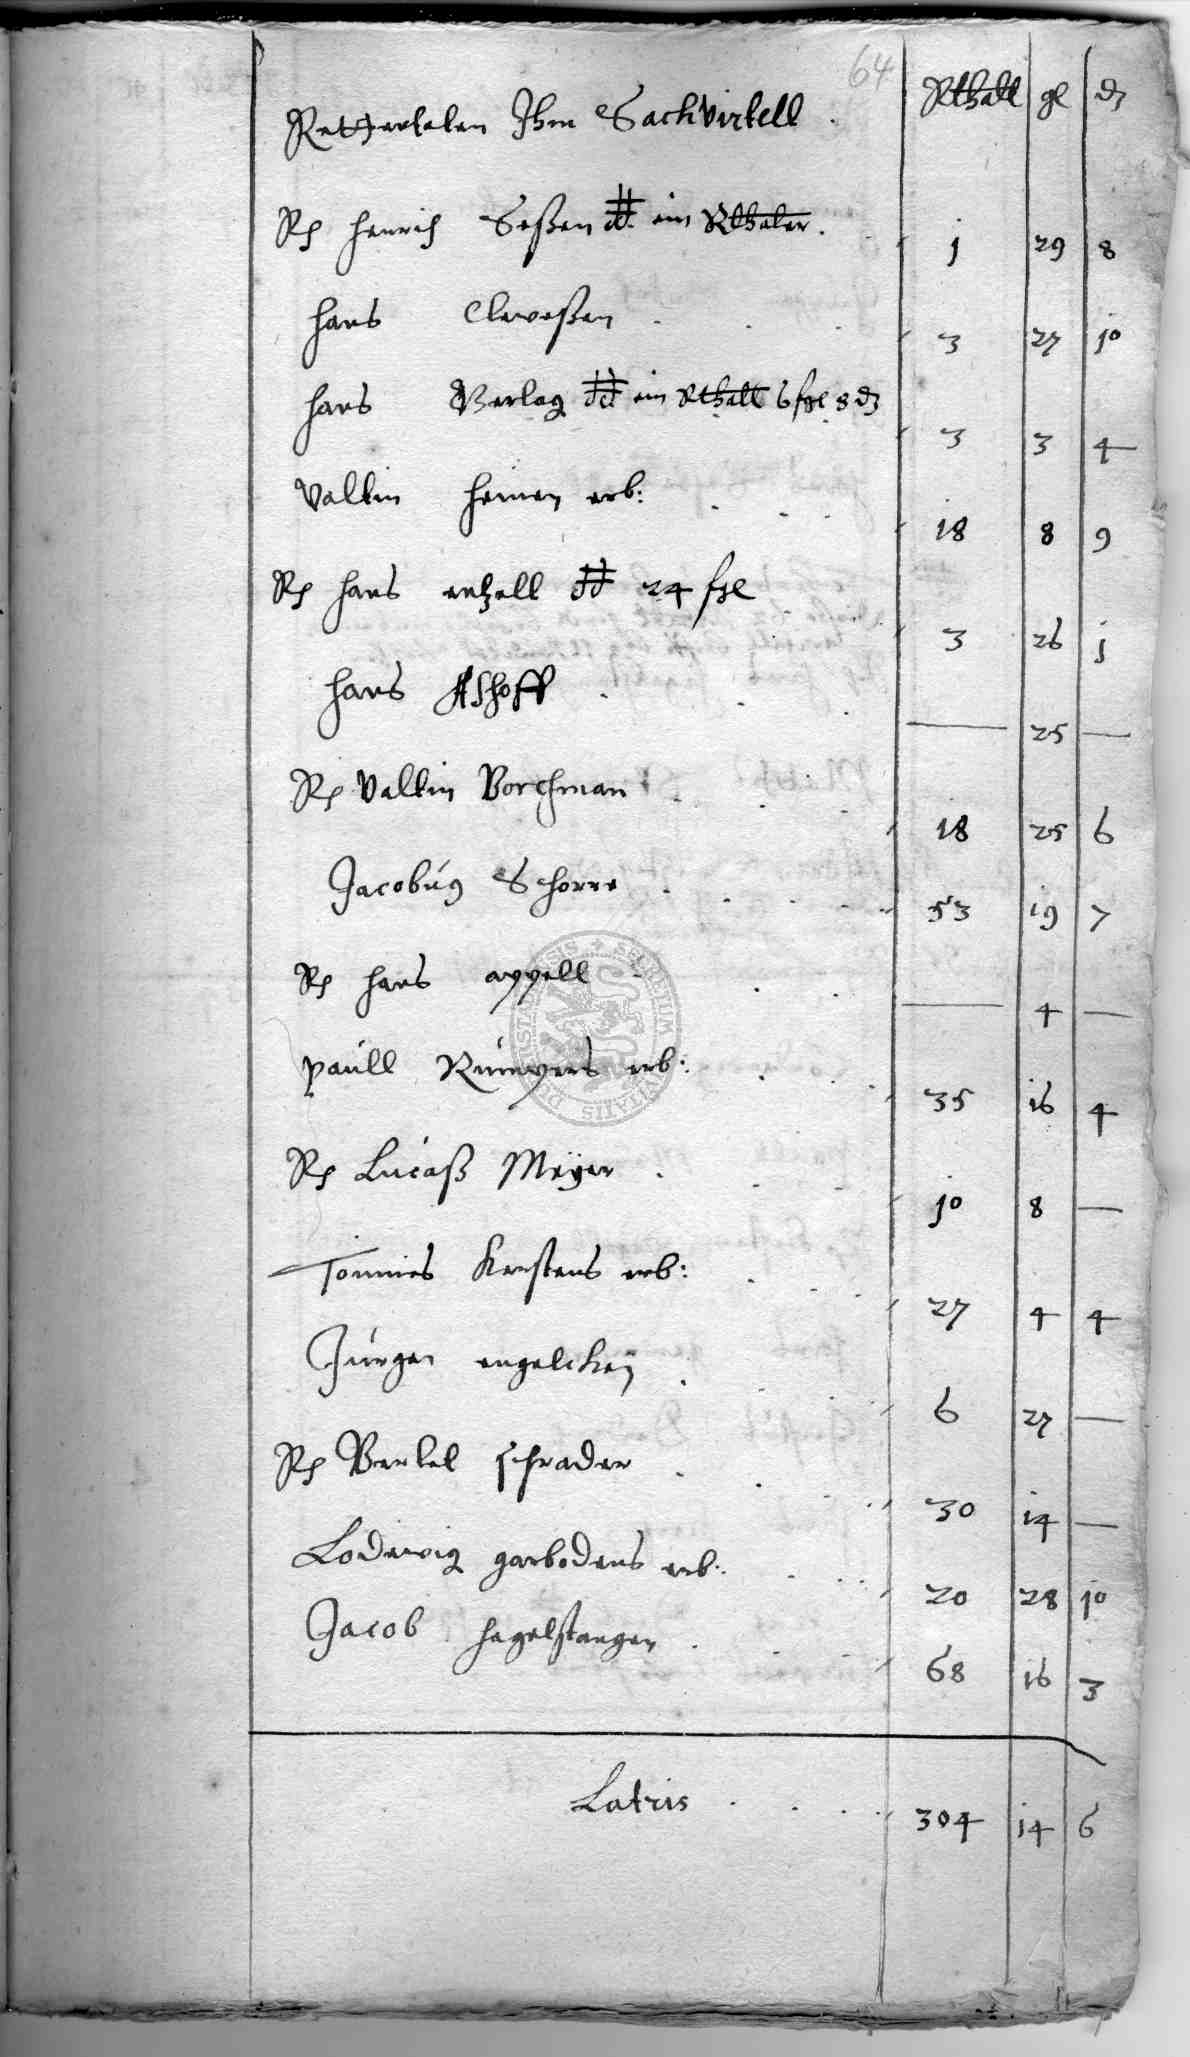 64
Rthall gl ₰
Rettardaten Ihm Sackvirtell
Rp Henrich Seßen dd. ein Rthaler. 1 29 8
Hans Claveßen 3 27 10
Hans Verlag dd ein Rthall 6 fgl 8 ₰ 3 3 4
Valtin Heinen erb: 18 8 9
Rp Hans entzell dd 24 fgl 3 26 1
Hans Ashoff — 25 —
Rp Valtin Borchman 18 25 6
Jacobus Schorre 53 19 7
Rp Hans appell — 4 —
Paull Rumpers erb: 35 16 4
Rp Lucaß Meÿer 10 8 —
Tonnies Karstens erb: 27 4 4
Jurgen engelcken 6 27 —
Rp Bertel schrader 30 14 —
Lodewig garbodens erb: 20 28 10
Jacob Hagelstangen 68 16 3
Latris 304 14 6